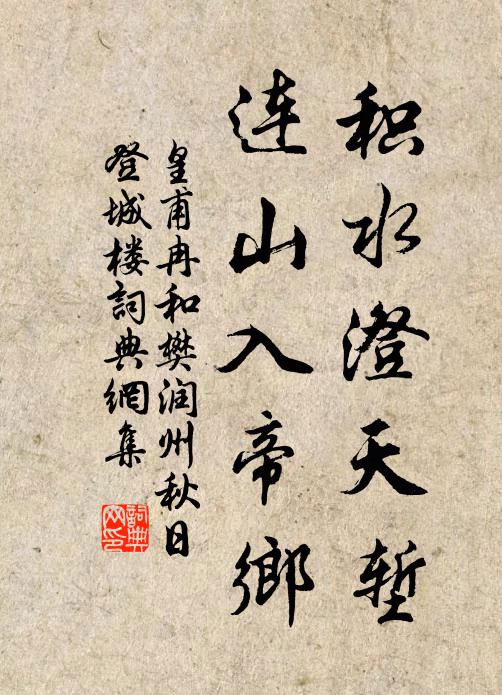 积水澄天堑
连山入帝鄉
皇甫冉和樊润州秋日
登城楼詞典網集
詞典
网印